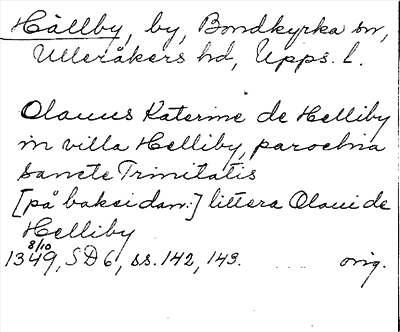 Hällby, by, Bondkyrka sn,
Ulleråkers hd, Upps. l.
Olauus Katerine de Helliby
in villa Helliby, parochia
sancte Trinitatis
[på baksidan:] littera Olaui de
Helliby
8/10
1349, SD 6, ss. 142, 143. orig.